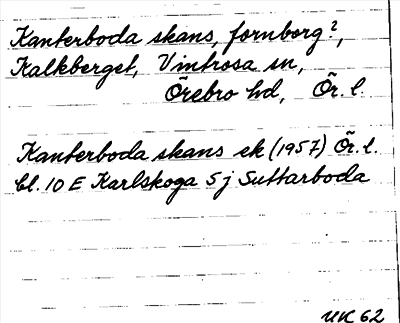 Kanterboda skans, fornborg?,
Kalkberget, Vintrosa sn,
Örebro hd, Ör. l.
Kanterboda skans ek (1957) Ör. l.
bl. 10 E Karlskoga 5 j Suttarboda
UK 62